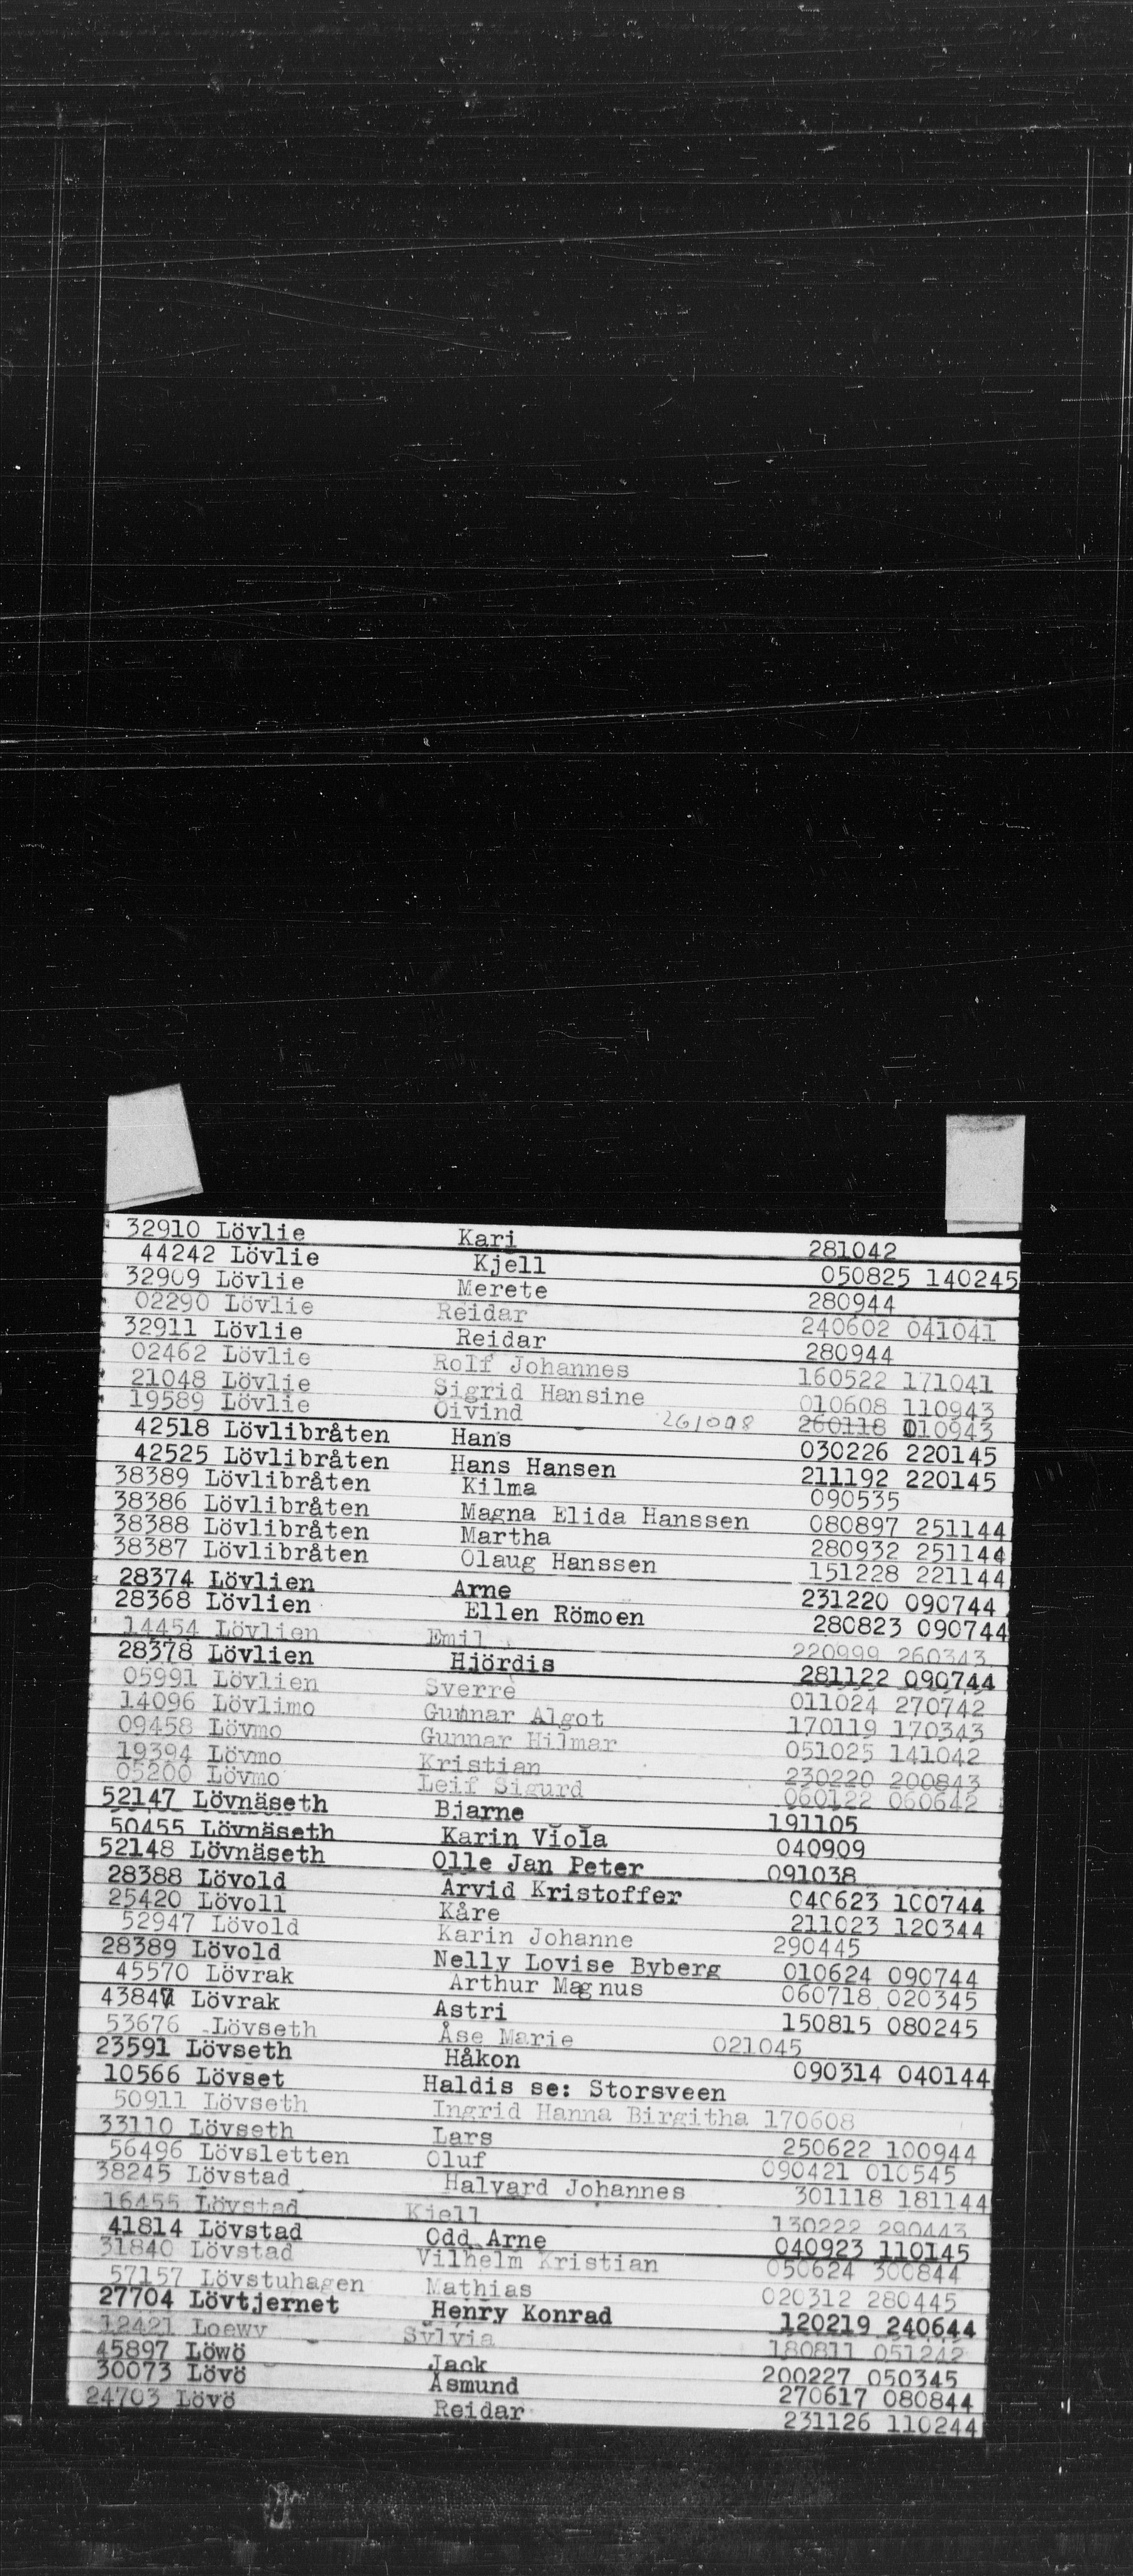 32910 Lövlie Kari 281042
44242 Lövlie Kjell 050825 140245
32909 Lövlie Merete 280944
02290 Lövlie Reidar 240602 041041
32911 Lövlie Reidar 280944
02462 Lövlie Rolf Johannes 160522 171041
21048 Lövlie Sigrid Hansine 010608 110943
19589 Lövlie Öivind 261098 260118 010943
42518 Lövlibråten Hans 030226 220145
42525 Lövlibråten Hans Hansen 211192 220145
38389 Lövlibråten Kilma 090535
38386 Lövlibråten Magna Elida Hanssen 080897 251144
38388 Lövlibråten Martha 280932 251144
38387 Lövlibråten Olaug Hanssen 151228 221144
28374 Lövlien Arne 231220 090744
28368 Lövlien Ellen Römoen 280823 090744
14454 Lövlien Emil 220999 260343
28378 Lövlien Hjördis 281122 090744
05991 Lövlien Sverre 011024 270742
14096 Lövlimo Gunnar Algot 170119 170343
09458 Lövmo Gunnar Hilmar 051025 141042
19394 Lövmo Kristian 230220 200843
05200 Lövmo Leif Sigurd 060122 060642
52147 Lövnäseth Bjarne 191105
50455 Lövnäseth Karin Viola 040909
52148 Lövnäseth Olle Jan Peter 091038
28388 Lövold Arvid Kristoffer 040623 100744
25420 Lövoll Kåre 211023 120344
52947 Lövold Karin Johanne 290445
28389 Lövold Nelly Lovise Byberg 010624 090744
45570 Lövrak Arthur Magnus 060718 020345
43847 Lövrak Astri 150815 080245
53676 Lövseth Åse Marie 021045
23591 Lövseth Håkon 090314 040144
10566 Lövset Haldis se: Storsveen
50911 Lövseth Ingrid Hanna Birgitha 170608
33110 Lövseth Lars 250622 100944
56496 Lövsletten Oluf 090421 010545
38245 Lövstad Halvard Johannes 301118 181144
16455 Lövstad Kjell 130222 290443
41814 Lövstad Odd Arne 040923 110145
31840 Lövstad Vilhelm Kristian 050624 300844
57157 Lövstuhagen Mathias 020312 280445
27704 Lövtjernet Henry Konrad 120219 240644
12421 Loewy Sylvia 180811 051242
45897 Löwö Jack 200227 050345
30073 Lövö Åsmund 270617 080844
24703 Lövö Reidar 231126 110244